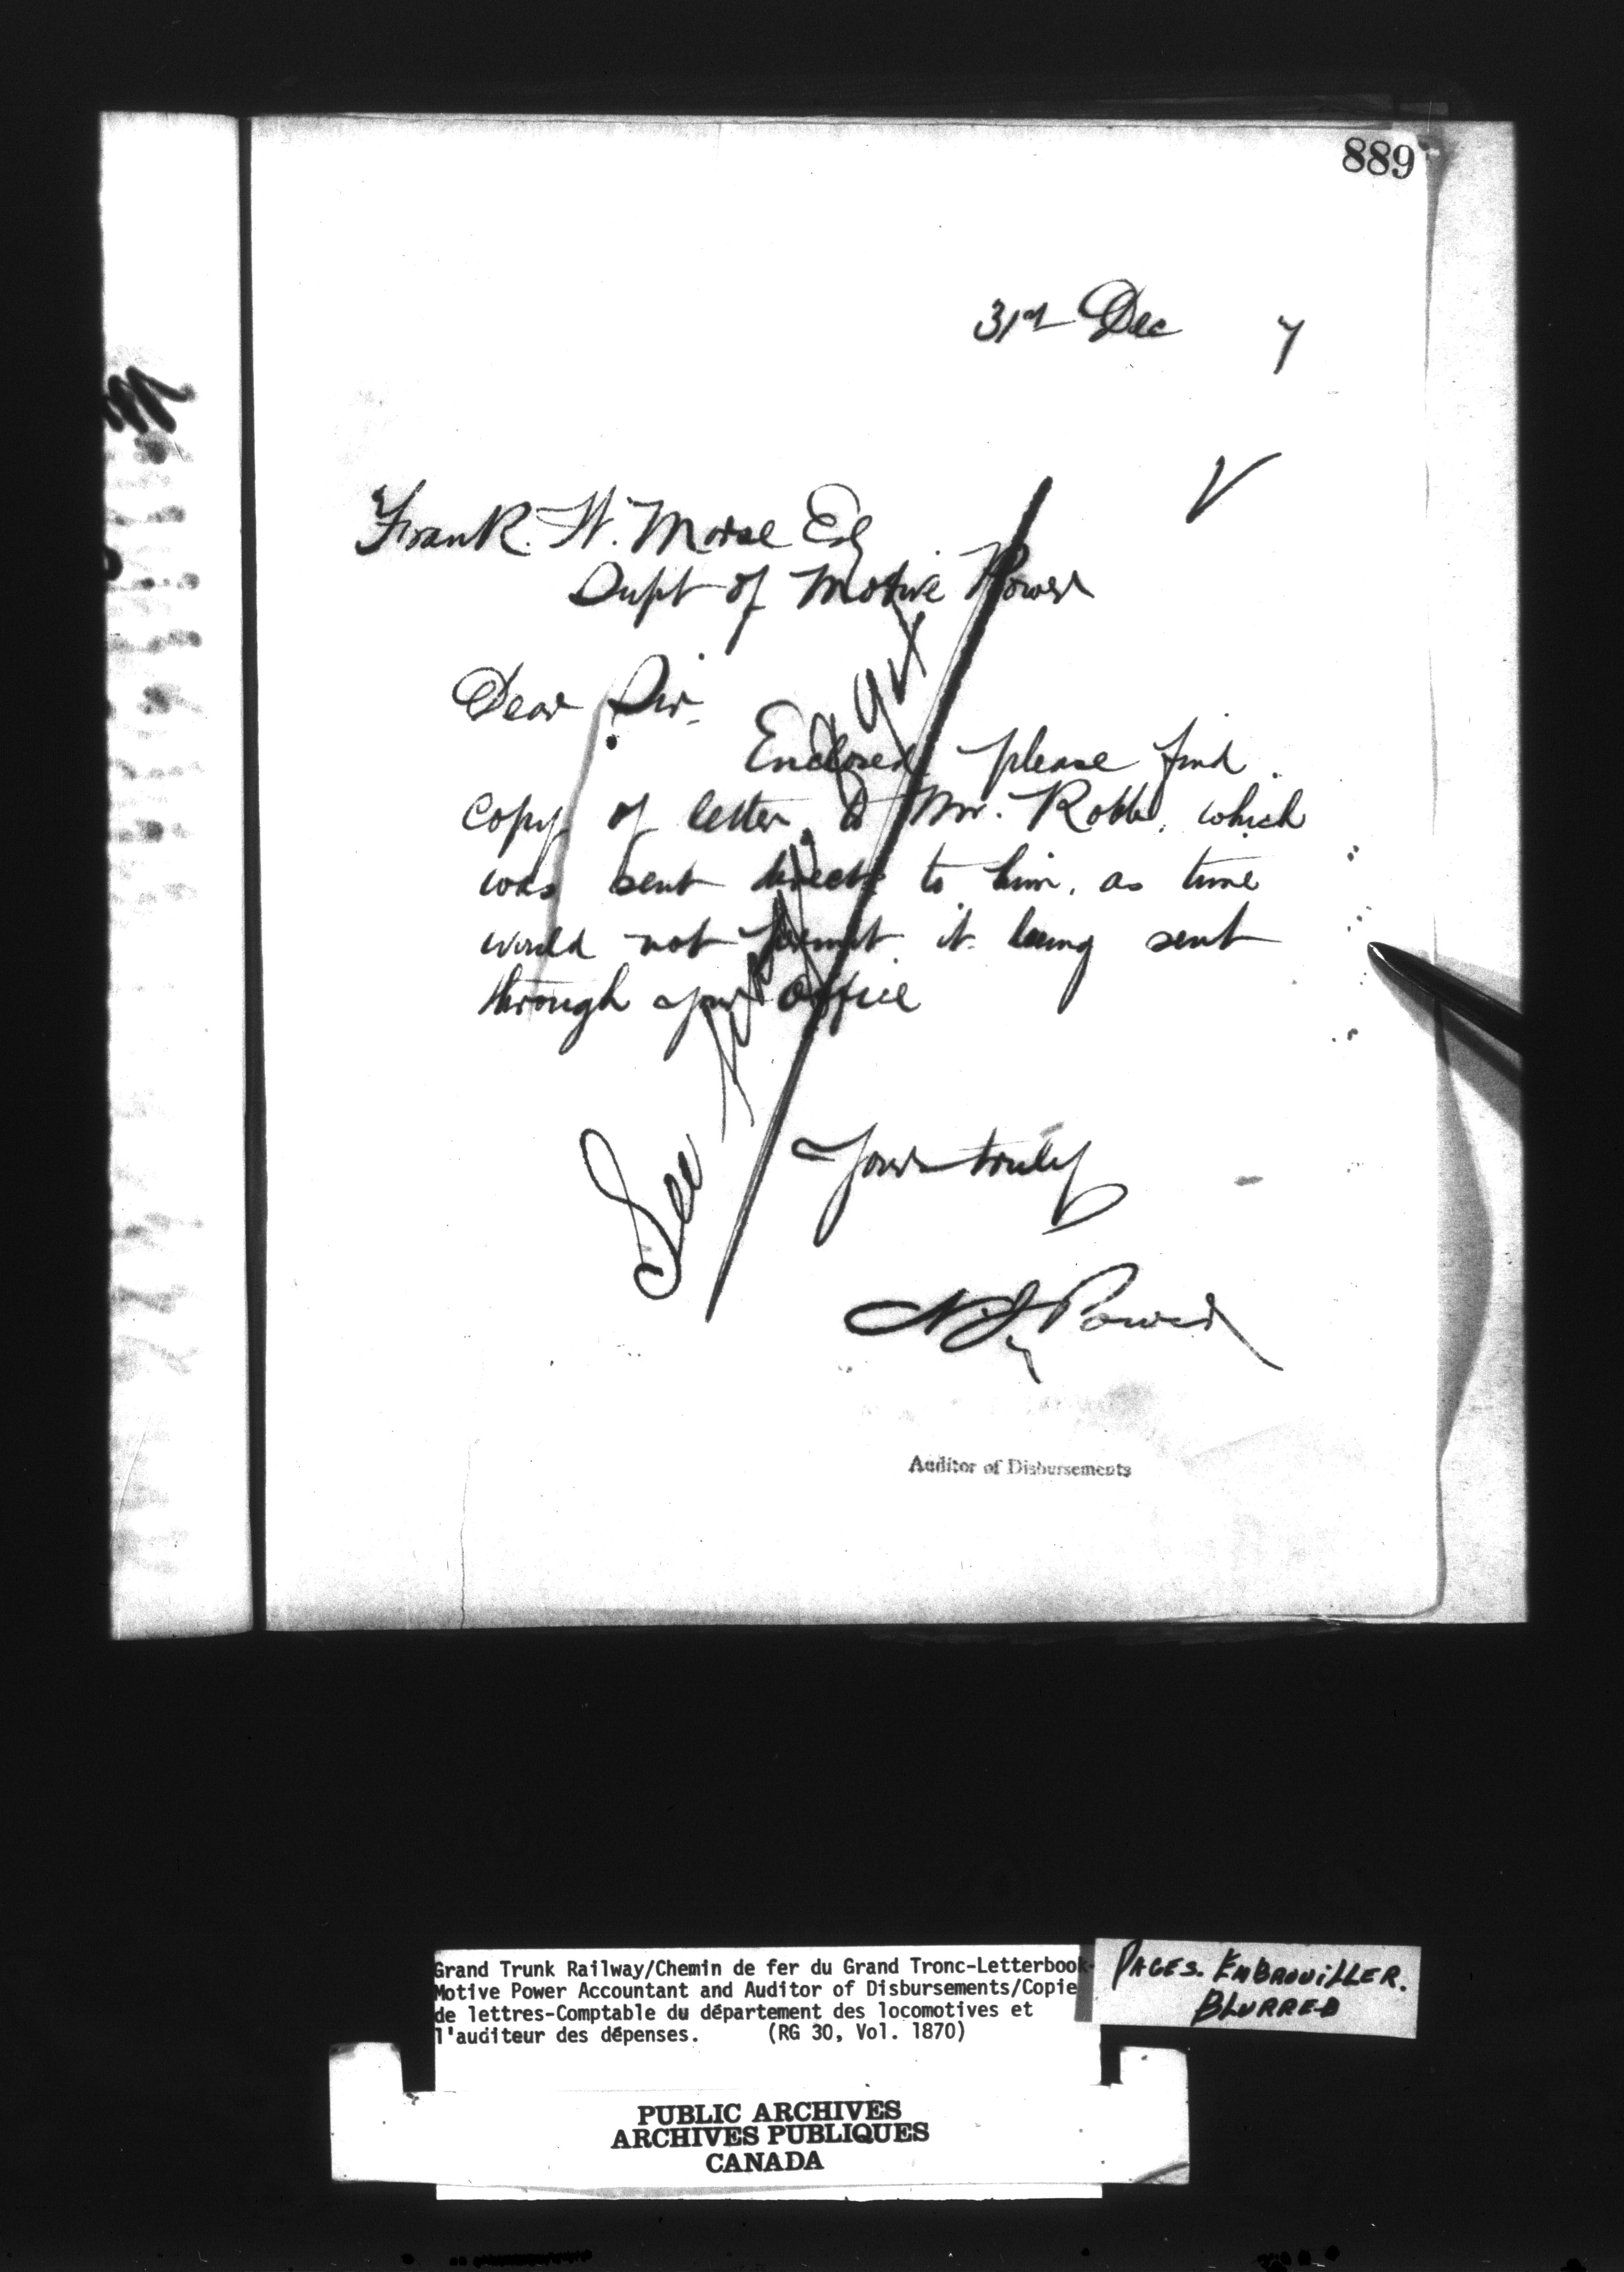 889
31st Dec 7
Frank. W. Morse Esq
Supt of Motive Power
Dear Sir.
Enclosed please find
copy of letter to Mr. Robb, which
was sent direct to him, as time
would not permit it being sent
through your Office
See
Yours truly
N. J. Power
Auditor of Disbursements
Grand Trunk Railway/Chemin de fer du Grand Tronc-Letterbook-
Motive Power Accountant and Auditor of Disbursements/Copie
de lettres-Comptable du département des locomotives et
l'auditeur des dépenses. (RG 30, Vol. 1870)
PAGES. EMBROUILLER.
BLURRED
PUBLIC ARCHIVES
ARCHIVES PUBLIQUES
CANADA